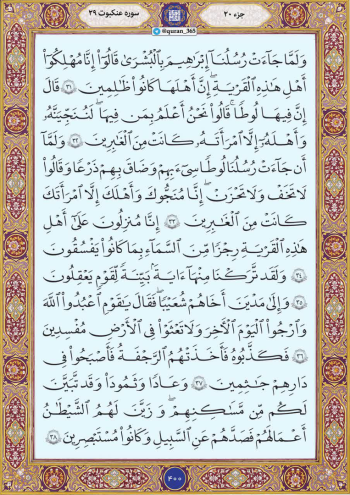 سوره عنکبوت ۲۹
جزء ۲۰
@quran_365
وَلَمَّا جَآءَتْ رُسُلُنَآ إِبْرَٰهِيمَ بِٱلْبُشْرَىٰ قَالُوٓا۟ إِنَّا مُهْلِكُوٓا۟
أَهْلِ هَٰذِهِ ٱلْقَرْيَةِ ۖ إِنَّ أَهْلَهَا كَانُوا۟ ظَٰلِمِينَ ٣١ قَالَ
إِنَّ فِيهَا لُوطًا ۚ قَالُوا۟ نَحْنُ أَعْلَمُ بِمَن فِيهَا ۖ لَنُنَجِّيَنَّهُۥ
وَأَهْلَهُۥٓ إِلَّا ٱمْرَأَتَهُۥ كَانَتْ مِنَ ٱلْغَٰبِرِينَ ٣٢ وَلَمَّآ
أَن جَآءَتْ رُسُلُنَا لُوطًا سِىٓءَ بِهِمْ وَضَاقَ بِهِمْ ذَرْعًا وَقَالُوا۟
لَا تَخَفْ وَلَا تَحْزَنْ ۖ إِنَّا مُنَجُّوكَ وَأَهْلَكَ إِلَّا ٱمْرَأَتَكَ
كَانَتْ مِنَ ٱلْغَٰبِرِينَ ٣٣ إِنَّا مُنزِلُونَ عَلَىٰٓ أَهْلِ
هَٰذِهِ ٱلْقَرْيَةِ رِجْزًا مِّنَ ٱلسَّمَآءِ بِمَا كَانُوا۟ يَفْسُقُونَ
٣٤ وَلَقَد تَّرَكْنَا مِنْهَآ ءَايَةًۢ بَيِّنَةً لِّقَوْمٍ يَعْقِلُونَ
٣٥ وَإِلَىٰ مَدْيَنَ أَخَاهُمْ شُعَيْبًا فَقَالَ يَٰقَوْمِ ٱعْبُدُوا۟ ٱللَّهَ
وَٱرْجُوا۟ ٱلْيَوْمَ ٱلْءَاخِرَ وَلَا تَعْثَوْا۟ فِى ٱلْأَرْضِ مُفْسِدِينَ
٣٦ فَكَذَّبُوهُ فَأَخَذَتْهُمُ ٱلرَّجْفَةُ فَأَصْبَحُوا۟ فِى
دَارِهِمْ جَٰثِمِينَ ٣٧ وَعَادًا وَثَمُودَا۟ وَقَد تَّبَيَّنَ
لَكُم مِّن مَّسَٰكِنِهِمْ ۖ وَزَيَّنَ لَهُمُ ٱلشَّيْطَٰنُ
أَعْمَٰلَهُمْ فَصَدَّهُمْ عَنِ ٱلسَّبِيلِ وَكَانُوا۟ مُسْتَبْصِرِينَ ٣٨
۴۰۰